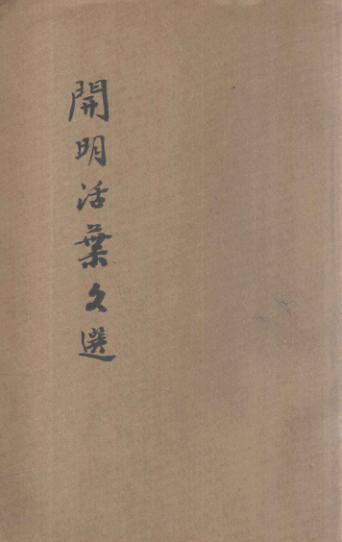 開明活葉文選